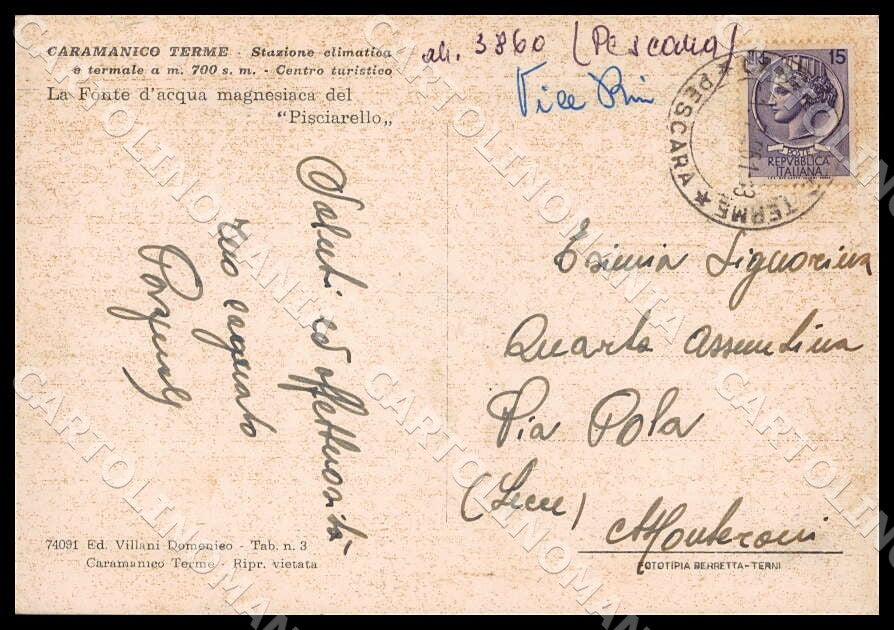 CARAMANICO TERME - Stazione climatica
e termale a m. 700 s. m. - Centro turistico
La Fonte d'acqua magnesiaca del
"Pisciarello„
3860 (Pescara)
15
POSTE
REPVBBLICA
ITALIANA
★ PESCARA ★
TERME
Saluti ed affettuosità
Esimia Signorina
Quarta Assuntina
Via Pola
(Lecce)
Monteroni
74091 Ed. Villani Domenico - Tab. n. 3
Caramanico Terme - Ripr. vietata
FOTOTIPIA BERRETTA-TERNI
CARTOLINOMANIA